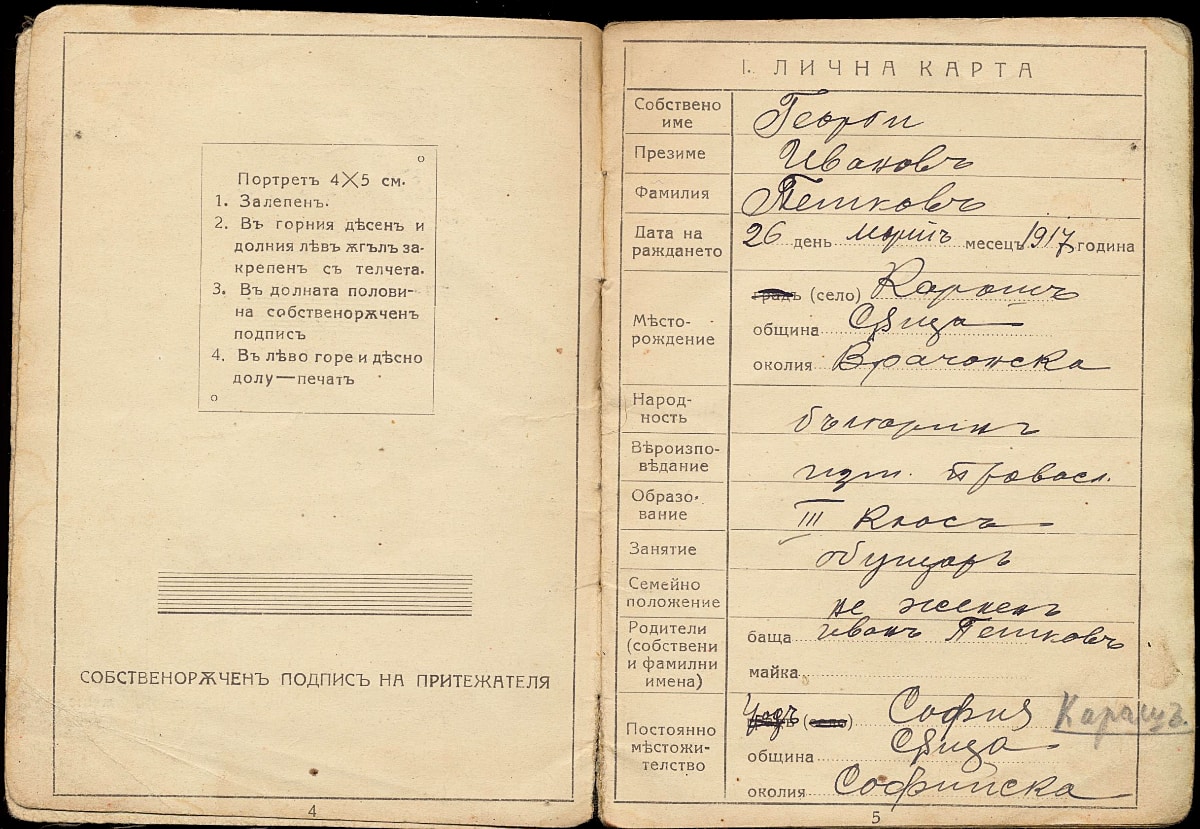 Портретъ 4X5 см.
1. Залепенъ.
2. Въ горния дѣсенъ и
долния лѣвъ ѫгълъ за-
крепенъ съ телчета.
3. Въ долната полови-
на собственорѫченъ
подпись
4. Въ лѣво горе и дѣсно
долу—печатъ
СОБСТВЕНОРѪЧЕНЪ ПОДПИСЪ НА ПРИТЕЖАТЕЛЯ
4
I. ЛИЧНА КАРТА
Собствено
име
Георги
Презиме
Ивановъ
Фамилия
Петковъ
Дата на
раждането
26 день мартъ месецъ 1917 година
Мѣсто-
рождение
градъ (село) Карашъ
община Сѫща
околия Врачанска
Народ-
ность
българинъ
Вѣроизпо-
вѣдание
изт. правосл.
Образо-
вание
III класъ
Занятие
обущарь
Семейно
положение
не жененъ
Родители
(собствени
и фамилни
имена)
баща Иванъ Петковъ
майка
Постоянно
мѣстожи-
телство
София Карашъ.
община Сѫща
околия Софийска
5